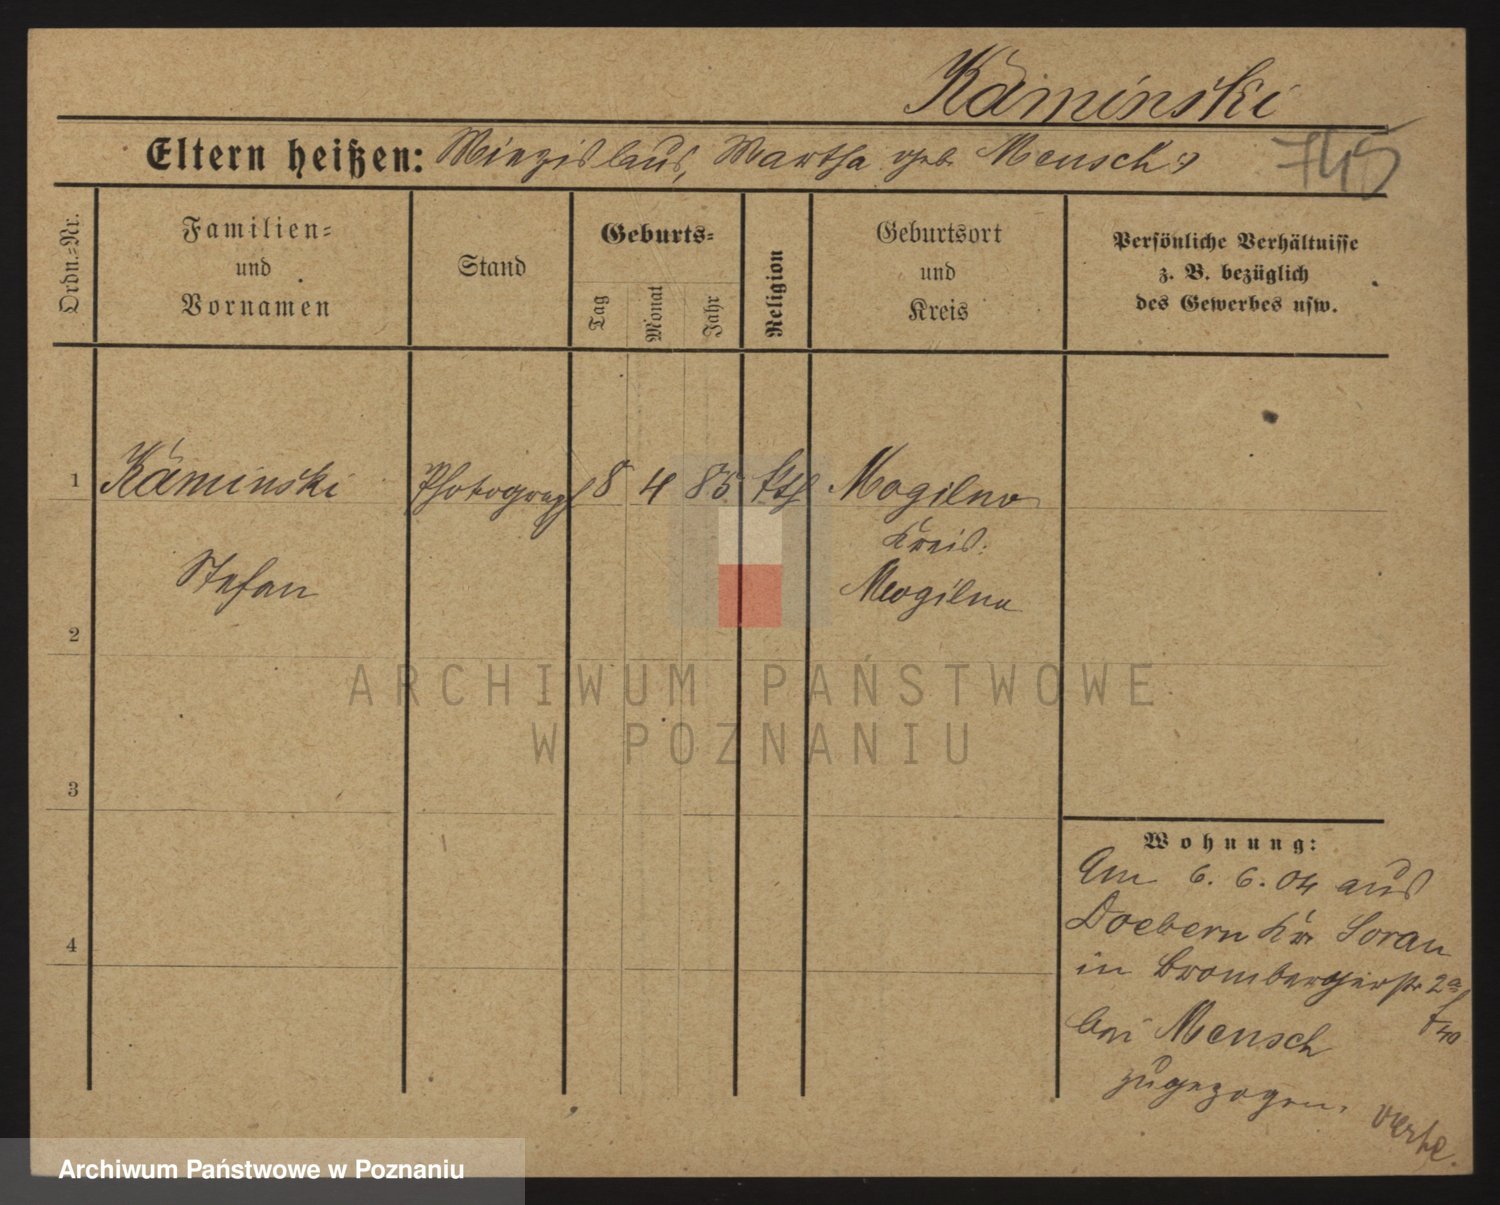 Kaminski
Eltern heißen: Miezislaus, Martha geb. Mensch
745
Ordn.=Nr.
Familien=
und
Vornamen
Stand
Geburts=
Tag
Monat
Jahr
Religion
Geburtsort
und
Kreis
Persönliche Verhältnisse
z. B. bezüglich
des Gewerbes usw.
1 Kaminski Photograph 8 4 85 kth Mogilno
Kreis
Stefan Mogilno
2
3
4
Wohnung:
Am 6. 6. 04 aus
Doebern Kr. Sorau
in Brombergerstr 2a
bei Mensch
zugezogen.
verte
ARCHIWUM PAŃSTWOWE
W POZNANIU
Archiwum Państwowe w Poznaniu